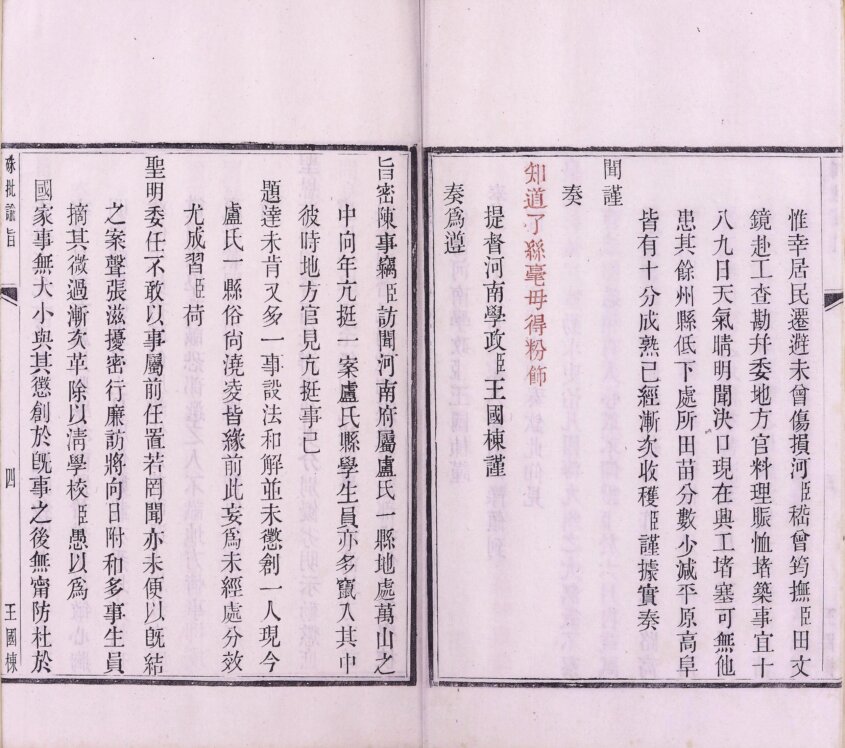 惟幸居民遷避未曾傷損河臣嵇曾筠撫臣田文
鏡赴工查勘幷委地方官料理賑恤堵築事宜十
八九日天氣晴明聞決口現在興工堵塞可無他
患其餘州縣低下處所田苗分數少減平原高阜
皆有十分成熟已經漸次收穫臣謹據實奏
聞謹
奏
知道了絲毫毋得粉飾
提督河南學政臣王國棟謹
奏爲遵
旨密陳事竊臣訪聞河南府屬盧氏一縣地處萬山之
中向年亢挺一案盧氏縣學生員亦多竄入其中
彼時地方官見亢挺事已
題達未肯又多一事設法和解並未懲創一人現今
盧氏一縣俗尙澆凌皆緣前此妄爲未經處分效
尤成習臣荷
聖明委任不敢以事屬前任置若罔聞亦未便以旣結
之案聲張滋擾密行廉訪將向日附和多事生員
摘其微過漸次革除以淸學校臣愚以爲
國家事無大小與其懲創於旣事之後無甯防杜於
硃批諭旨
四
王國棟